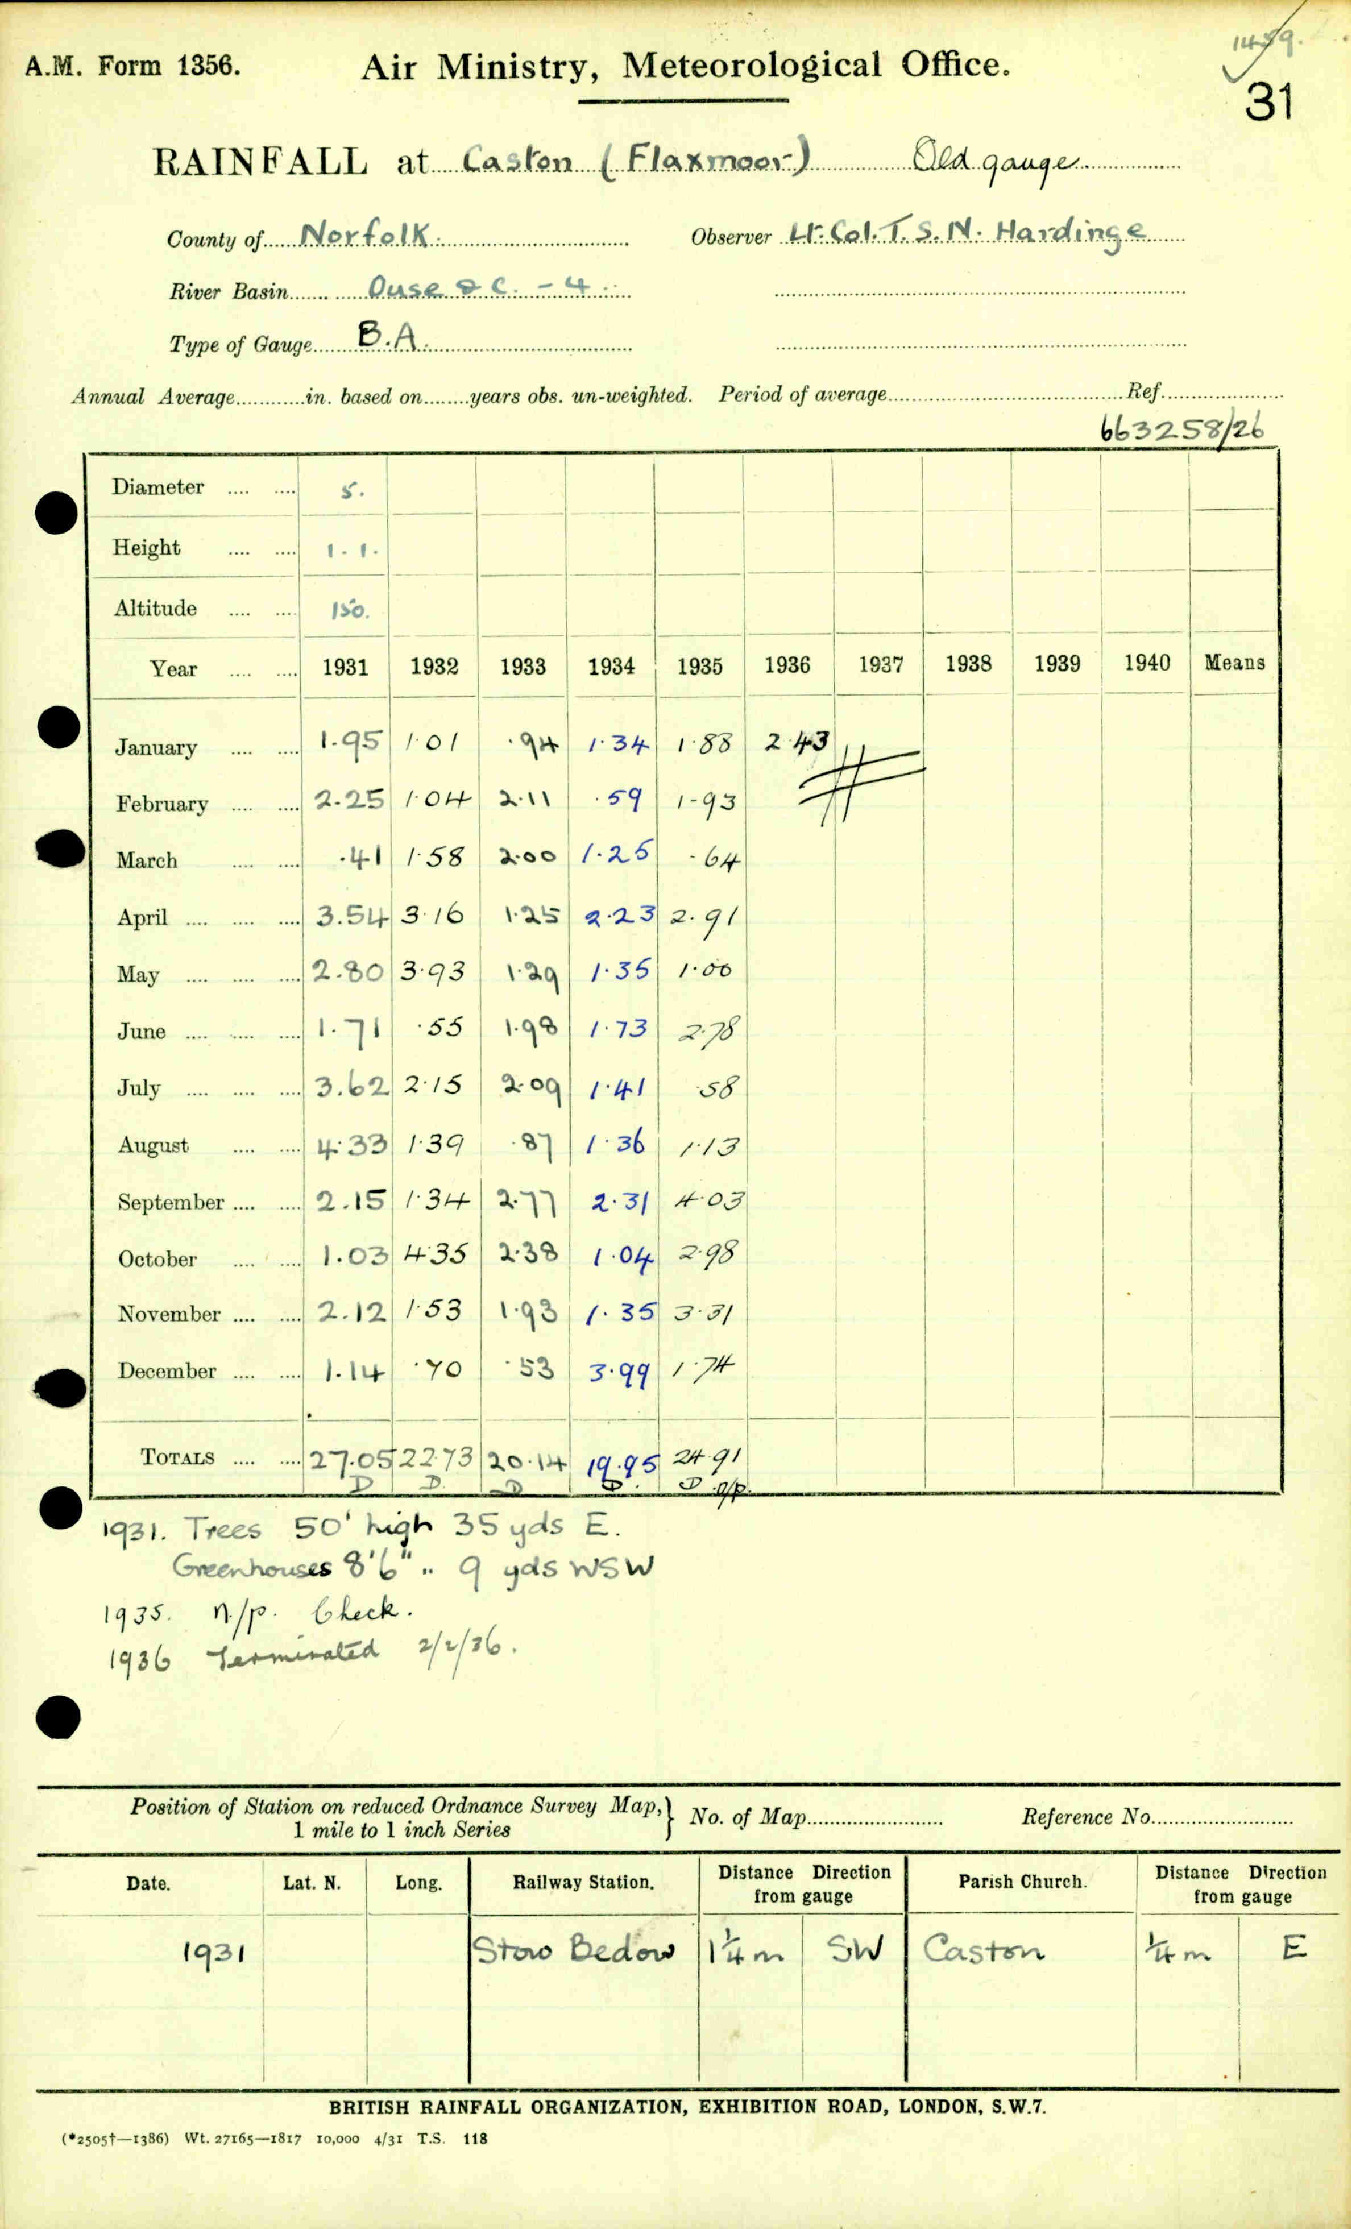 A.M. Form 1356.
Air Ministry, Meteorological Office.
31
RAINFALL at Caston (Flaxmoor) Old gauge
County of Norfolk. Observer Lt. Col. T. S. N. Hardinge
River Basin Ouse &c. - 4
Type of Gauge B.A.
Annual Average in. based on years obs. un-weighted. Period of average Ref.
663258/26
Diameter 5.
Height 1.1.
Altitude 150.
Year 1931 1932 1933 1934 1935 1936 1937 1938 1939 1940 Means
January 1.95 1.01 .94 1.34 1.88 2.43
February 2.25 1.04 2.11 .59 1.93
March .41 1.58 2.00 1.25 .64
April 3.54 3.16 1.25 2.23 2.91
May 2.80 3.93 1.29 1.35 1.00
June 1.71 .55 1.98 1.73 2.78
July 3.62 2.15 2.09 1.41 .58
August 4.33 1.39 .87 1.36 1.13
September 2.15 1.34 2.77 2.31 4.03
October 1.03 4.35 2.38 1.04 2.98
November 2.12 1.53 1.93 1.35 3.31
December 1.14 .70 .53 3.99 1.74
TOTALS 27.05 22.73 20.14 19.95 24.91
D D. D D. D n/p.
1931. Trees 50' high 35 yds E.
Greenhouses 8'6" " 9 yds WSW
1935. n/p. Check.
1936 Terminated 2/2/36.
Position of Station on reduced Ordnance Survey Map, 1 mile to 1 inch Series } No. of Map Reference No.
Date. Lat. N. Long. Railway Station. Distance Direction from gauge Parish Church. Distance Direction from gauge
1931 Stow Bedow 1¼ m SW Caston ¼ m E
BRITISH RAINFALL ORGANIZATION, EXHIBITION ROAD, LONDON, S.W.7.
(*2505†—1386) Wt. 27165—1817 10,000 4/31 T.S. 118